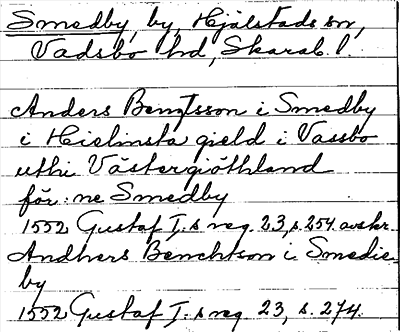 Smedby, by, Hjälstads sn,
Vadsbo hd, Skarab. l.
Anders Bentsson i Smedby
i Hielmsta gield i Vassbo
uthi Västergiöthland
för:ne Smedby
1552 Gustaf I:s reg. 23, s. 254 avskr.
Andhers Benchtson i Smedie
by
1552 Gustaf I:s reg. 23, s. 274.